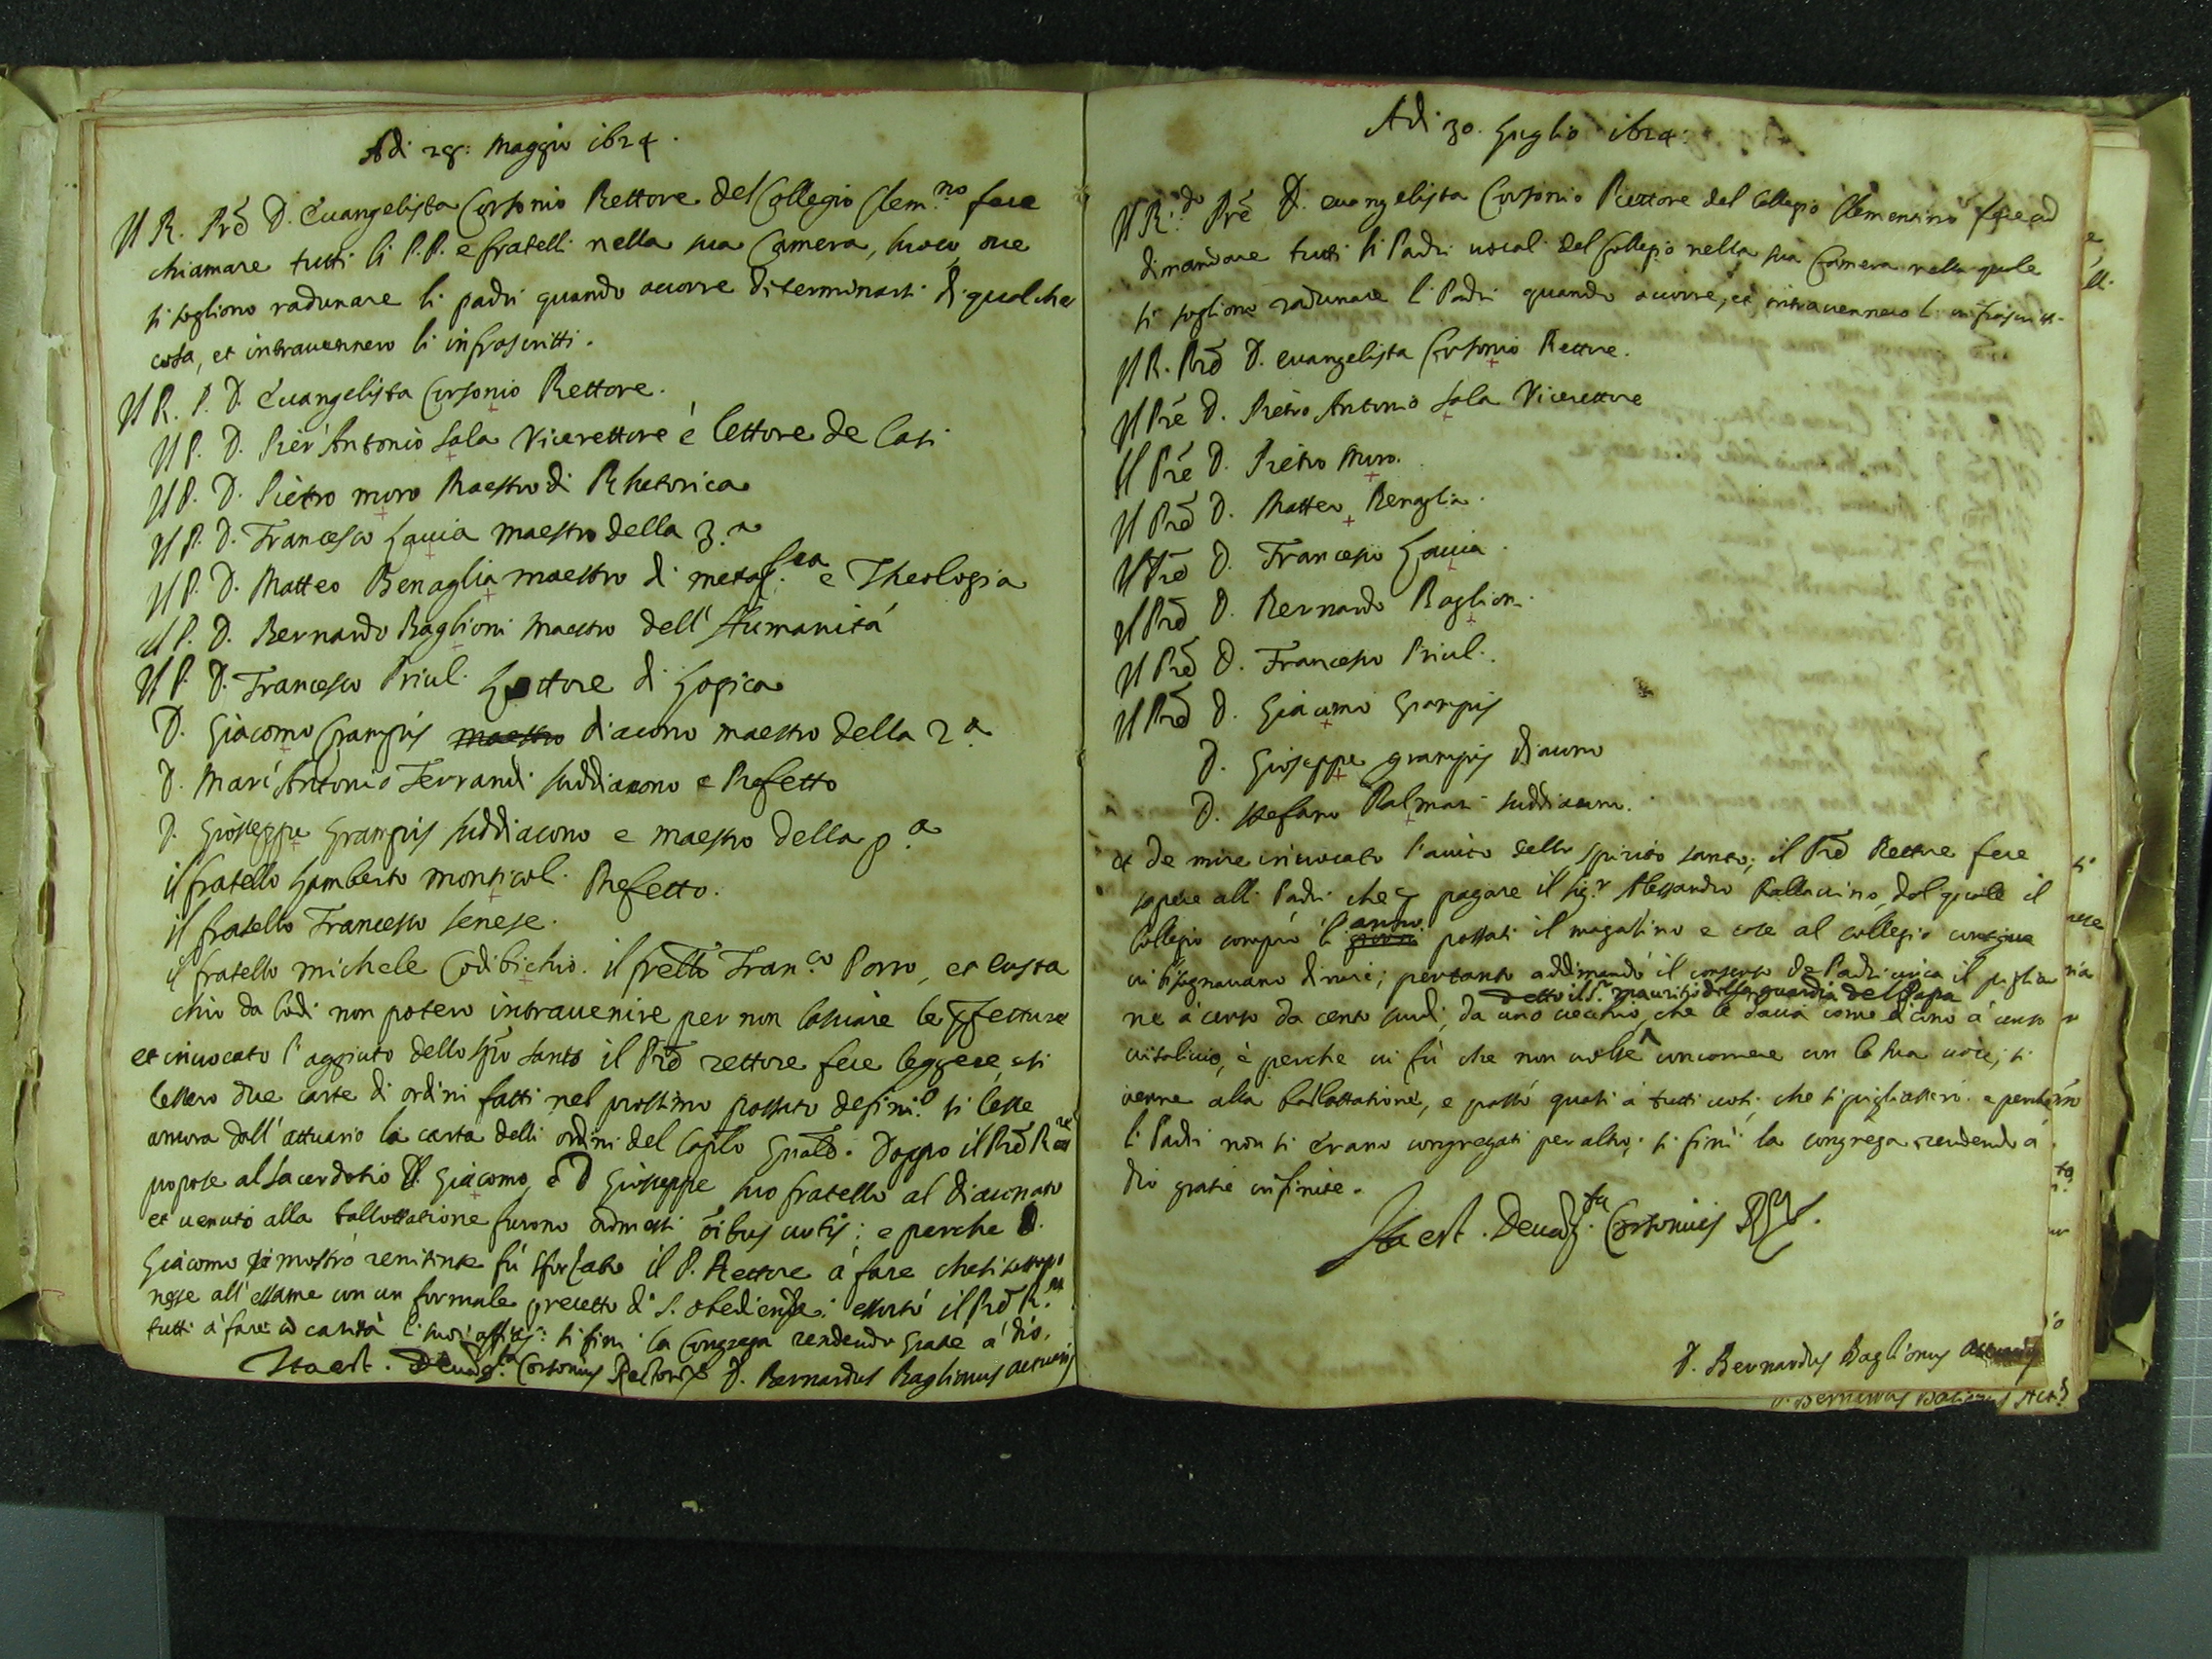 Adi 28: Maggio 1624.
Il R. Prē D. Euangelista Corsonio Rettore del Collegio Clem.no fece
chiamare tutti li P.P. e fratelli nella sua Camera, luoco, oue
si sogliono radunare li padri quando accorre diterminarsi di qualche
cosa, et intrauennero li infrascritti.
Il R. P. D. Euangelista Corsonio Rettore.
Il P. D. Pier' Antonio Sala Vicerettore é lettore de Casi
Il P. D. Piètro moro Maestro di Rhetorica
Il P. D. Francesco Gauia maestro della 3.a
Il P. D. Matteo Benaglia maestro di metaf.ca e Theologia
Il P. D. Bernardo Baglioni Maestro dell' Humanitá
Il P. D. Francesco Priul. Lettore di Logica
D. Giàcomo Grampis maestro diacono maestro della 2.a
D. Marc' Antonio Ferrandi suddiacono e Prefetto
D. Gioseppe Grampis suddiacono e maestro della p.a
il fratello Lamberto monticol. Prefetto.
il fratello Francesco senese.
il fratello michele Codibichio. il frēllo Fran.co Porro, et Eusta
chio da lodi non potero intrauenire per non lasciare le Prefetture
et inuocato l'aggiuto dello Spō santo il Prē rettore fece leggere, si
lessero due carte di ordini fatti nel prossimo passato defini.o si lesse
ancora dall' attuario la carta delli ordini del Caplo Gnāle. Doppo il Prē R.re
propose al sacerdotio D. Giàcomo, e D Gioseppe suo fratello al diaconato
et uenuto alla ballottatione furono admessi oībus uotis: e perche D.
Giàcomo si mostrò renitente fú sforzato il P. Rettore á fare che si
nesse all' essame con un formale precetto di S. obedienza: essortó il Prē R.re
tutti á fare cō carità li suoi officij: si finì la Congrega rendendo gratie á dio.
Ita est. D. Euang.ta Corsonius Rector D. Bernardus Baglionus actuarius
Adi 30. Luglio 1624:
Il R.do Prē D. euangelista Corsonio Rettore del Collegio Clementino fece ad
dimandare tutti li Padri uocali del Collegio nella sua Camera nella quale
si sogliono radunare li Padri quando accorre, et intrauennero li infrascritti.
Il R. Prē D. euangelista Corsonio Rettore.
Il Prē D. Piètro Antonio Sala Vicerettore
Il Prē D. Piètro Moro.
Il Prē D. Matteo Benaglia.
Il Prē D. Francesco Gauia.
Il Prē D. Bernardo Baglioni.
Il Prē D. Francesco Priul.
Il Prē D. Giàcomo Grampis
D. Gioseppe grampis diacono
D. stefano Palmari suddiacono.
et de more inuocato l'auito dello Spirito santo; il Prē Rettore fece
sapere alli Padri che per pagare il sig.r Alessandro Pallauino, dal quale il
Collegio compró li anni passati il magasino e case al collegio contigue
ui bisognauano dinari; pertanto addimandó il consenso de Padri circa il piglia
detto il S.r mauritio della guardia del Papa
ne á censo da cento scudi, da uno uecchio, che le daua come dicono á censo
uitalicio, è perche ui fú che non uolse concorrere con la sua uoce, si
uenne alla ballottatione, e passó quasi á tutti uoti che si pigliassero. e perche
li Padri non si erano congregati per altro; si finì la congrega rendendo á
dio gratie infinite.
Ita est. D. Euang.ta Corsonius
D. Bernardus Baglionus